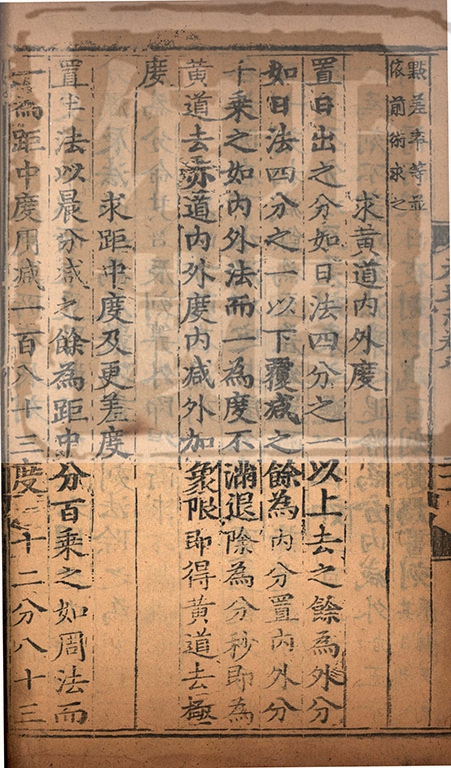 點差率等並
依前術求之
求黃道內外度
置日出之分如日法四分之一以上去之餘為外分
如日法四分之一以下覆減之餘為內分置內外分
千乘之如內外法而一為度不滿退除為分秒即為
黃道去赤道內外度內減外加象限即得黃道去極
度
求距中度及更差度
置法以晨分減之餘為距中分百乘之如周法而
一為距中度用減一百八十三度十二分八十三